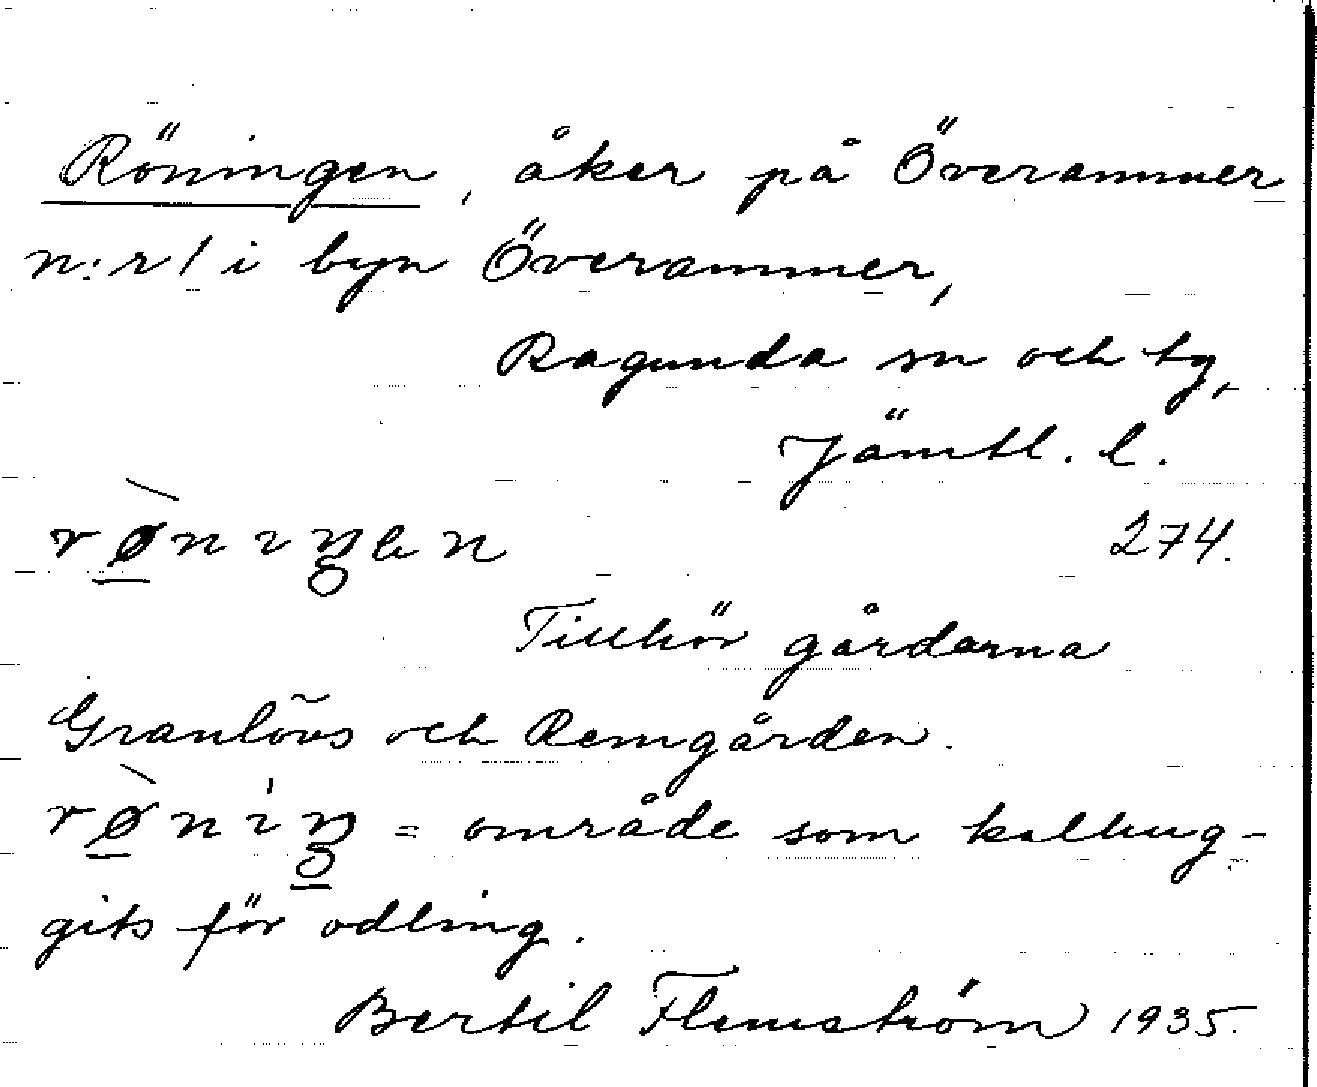 Röningen, åker på Överammer
n:r 1 i byn Överammer,
Ragunda sn och tg,
Jämtl. l.
rø̠̀nıŋen 274.
Tillhör gårdarna
Granlövs och Remgården.
rø̠̀niŋ = område som kalhug-
gits för odling.
Bertil Flemström 1935.